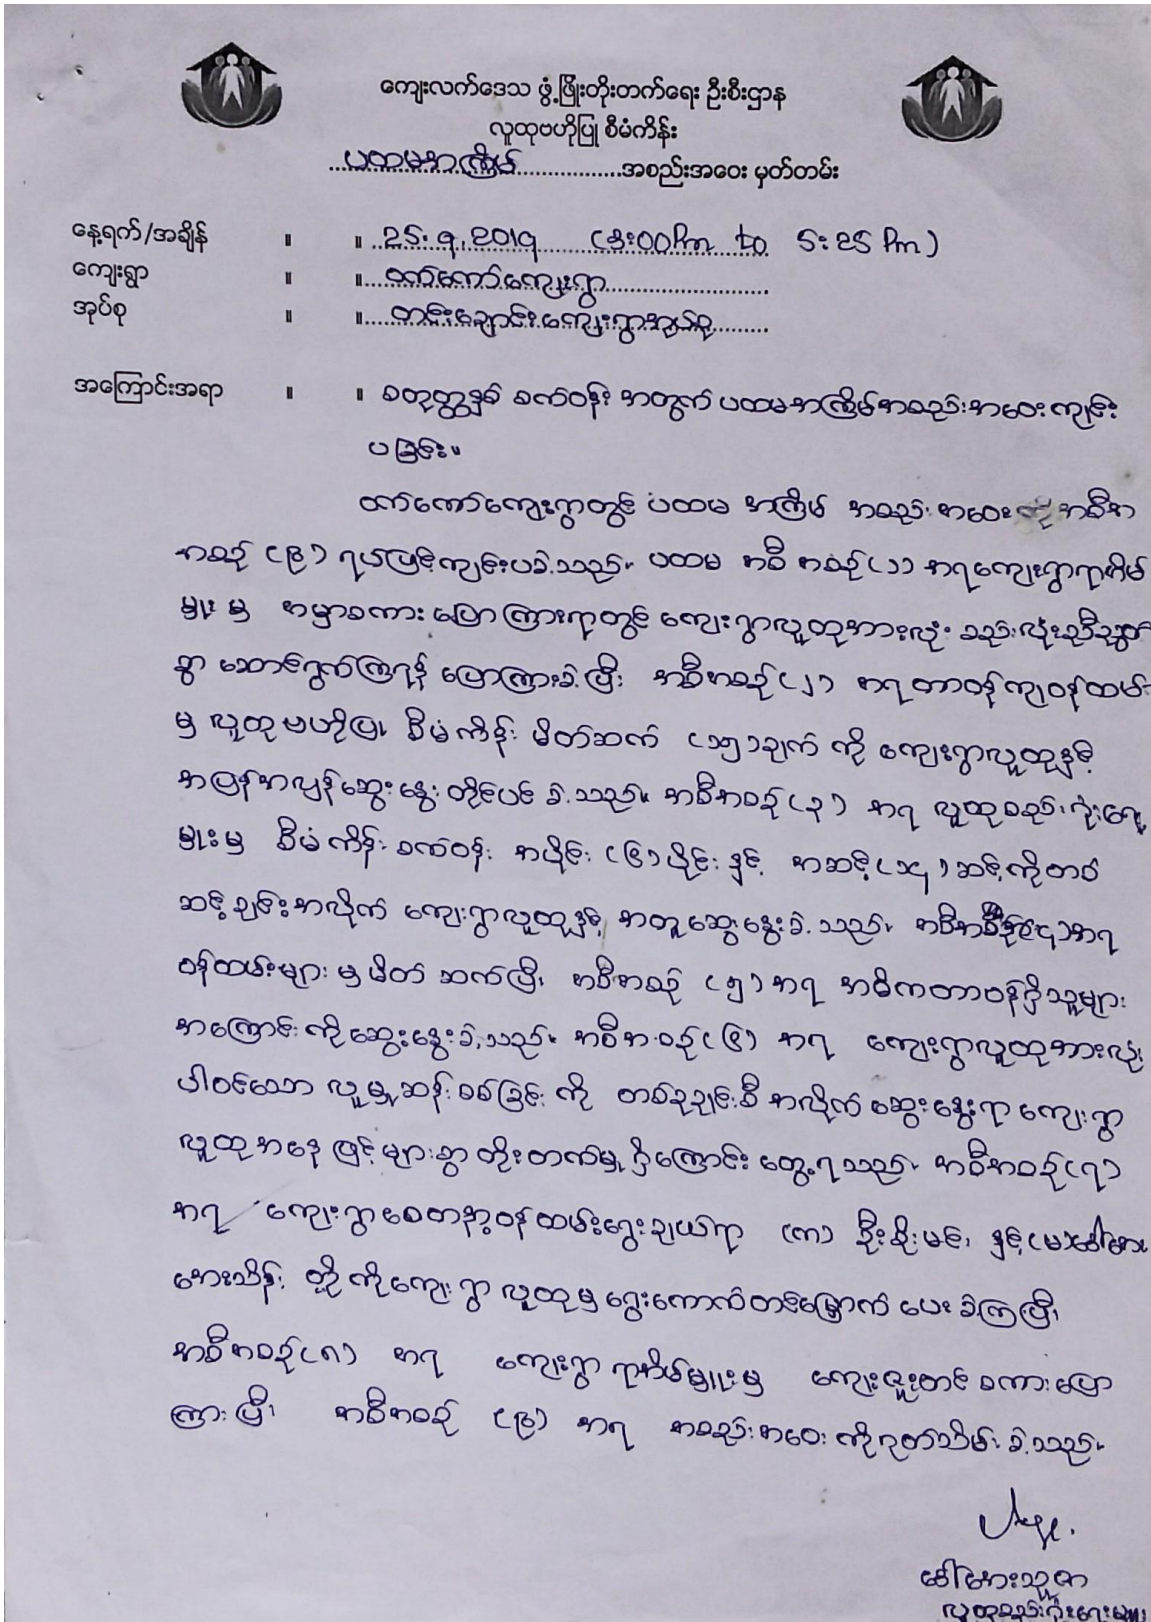 ကျေးလက်ဒေသ ဖွံ့ဖြိုးတိုးတက်ရေး ဦးစီးဌာန
လူထုဗဟိုပြု စီမံကိန်း
ပထမအကြိမ် အစည်းအဝေး မှတ်တမ်း
နေ့ရက်/အချိန် ။ ။ 25.9.2019 (3:00 Pm to 5:25 Pm)
ကျေးရွာ ။ ။ ကျေးရွာ
အုပ်စု ။ ။ တင်းချောင်းကျေးရွာအုပ်စု
အကြောင်းအရာ ။ ။ စတုတ္ထနှစ် စက်ဝန်း အတွက် ပထမအကြိမ်အစည်းအဝေးကျင်း
ပခြင်း။
ကျေးရွာတွင် ပထမ အကြိမ် အစည်းအဝေးကို အစီအ
အစဉ် (၉) ရပ်ဖြင့်ကျင်းပခဲ့သည်။ ပထမ အစီ အစဉ်(၁) အရကျေးရွာရာအိမ်
မှူး မှ အမှာစကား ပြောကြားရာတွင် ကျေးရွာလူထုအားလုံး စည်းလုံးညီညွတ်
စွာ ဆောင်ရွက်ကြရန် ပြောကြားခဲ့ပြီး အစီအစဉ်(၂) အရတာဝန်ကျဝန်ထမ်း
မှ လူထုဗဟိုပြု စီမံကိန်း မိတ်ဆက် (၁၅)ချက် ကို ကျေးရွာလူထုနှင့်
အပြန်အလှန်ဆွေးနွေး တိုင်ပင် ခဲ့သည်။ အစီအစဉ်(၃) အရ လူထုစည်းရုံးရေး
မှူးမှ စီမံကိန်း စက်ဝန်း အပိုင်း (၆)ပိုင်း နှင့် အဆင့်(၁၄)ဆင့်ကိုတစ်
ဆင့်ချင်းအလိုက် ကျေးရွာလူထုနှင့် အတူဆွေးနွေးခဲ့သည်။ အစီအစဉ်(၄)အရ
ဝန်ထမ်းများ မှ မိတ် ဆက်ပြီး အစီအစဉ် (၅) အရ အဓိကတာဝန်ရှိသူများ
အကြောင်း ကိုဆွေးနွေးခဲ့သည်။ အစီအစဉ်(၆) အရ ကျေးရွာလူထုအားလုံး
ပါဝင်သော လူမှုဆန်းစစ်ခြင်း ကို တစ်ခုချင်းစီ အလိုက် ဆွေးနွေးရာ ကျေးရွာ
လူထုအနေ ဖြင့်များစွာ တိုးတက်မှု ရှိကြောင်း တွေ့ရသည်။ အစီအစဉ်(၇)
အရ ကျေးရွာစေတနာ့ဝန်ထမ်းရွေးချယ်ရာ (က) ဦးစိုးမင်း နှင့်(မ)ဒေါ်အေး
အေးသိန်း တို့ ကိုကျေးရွာ လူထုမှ ရွေးကောက်တင်မြှောက် ပေးခဲ့ကြပြီး
အစီအစဉ်(၈) အရ ကျေးရွာ ရာအိမ်မှူးမှ ကျေးဇူးတင် စကားပြော
ကြားပြီး အစီအစဉ် (၉) အရ အစည်းအဝေး ကိုရုတ်သိမ်း ခဲ့သည်။
ဒေါ်အေးသူဇာ
လူထုစည်းရုံးရေးမှူး